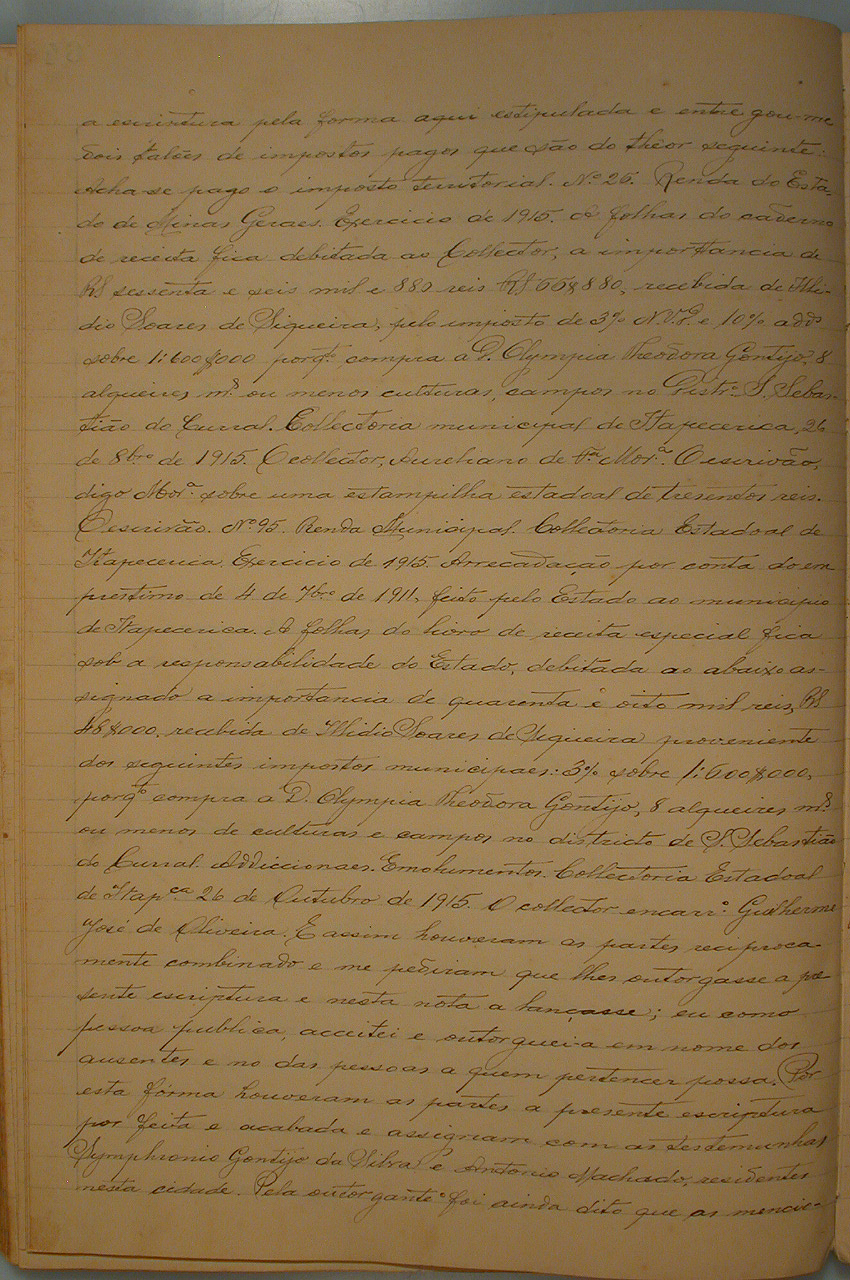 a escriptura pela forma aqui estipulada e entregou-me
dois talões de impostos pagos que são do theor seguinte:
Acha-se pago o imposto territorial. Nº 26. Renda do Esta-
do de Minas Geraes. Exercicio de 1915. A folhas do caderno
de receita fica debitada ao Collector, a importancia de
R$ sessenta e seis mil e 880 reis R$ 66$880, recebida de Illi-
dio Soares de Siqueira, pelo imposto de 3% N.V.D. e 10% add.
sobre 1:600$000 porqto compra a D. Olympia Theodora Gontijo, 8
alqueires m.s ou menos culturas, campos no Distr.o S. Sebas-
tião do Curral. Collectoria municipal de Itapecerica, 26
de 8bro de 1915. O collector, Aureliano de Mor.a O escrivão,
digo Mor.a sobre uma estampilha estadoal de tresentos reis.
O escrivão. Nº 95. Renda Municipal. Collectoria Estadoal de
Itapecerica. Exercicio de 1915. Arrecadação por conta do em
prestimo de 4 de 7bro de 1911, feito pelo Estado ao municipio
de Itapecerica. A folhas do livro de receita especial fica
sob a responsabilidade do Estado, debitada ao abaixo as-
signado a importancia de quarenta e oito mil reis, R$
48$000, recebida de Illidio Soares de Siqueira proveniente
dos seguintes impostos municipaes: 3% sobre 1:600$000,
porqto compra a D. Olympia Theodora Gontijo, 8 alqueires m.s
ou menos de culturas e campos no districto de S. Sebastião
do Curral. Addiccionaes. Emolumentos. Collectoria Estadoal
de Itap.ca 26 de Outubro de 1915. O collector encarr.o Guilherme
José de Oliveira. E assim houveram as partes reciproca-
mente combinado e me pediram que lhes outorgasse a pre-
sente escriptura e nesta nota a lançasse; eu como
pessoa publica, acceitei e outorguei-a em nome dos
ausentes e no das pessoas a quem pertencer possa. Por
esta fórma houveram as partes a presente escriptura
por feita e acabada e assignam com as testemunhas
Symphronio Gontijo da Silva e Antonio Machado, residentes
nesta cidade. Pela outorgante foi ainda dito que as mencio-